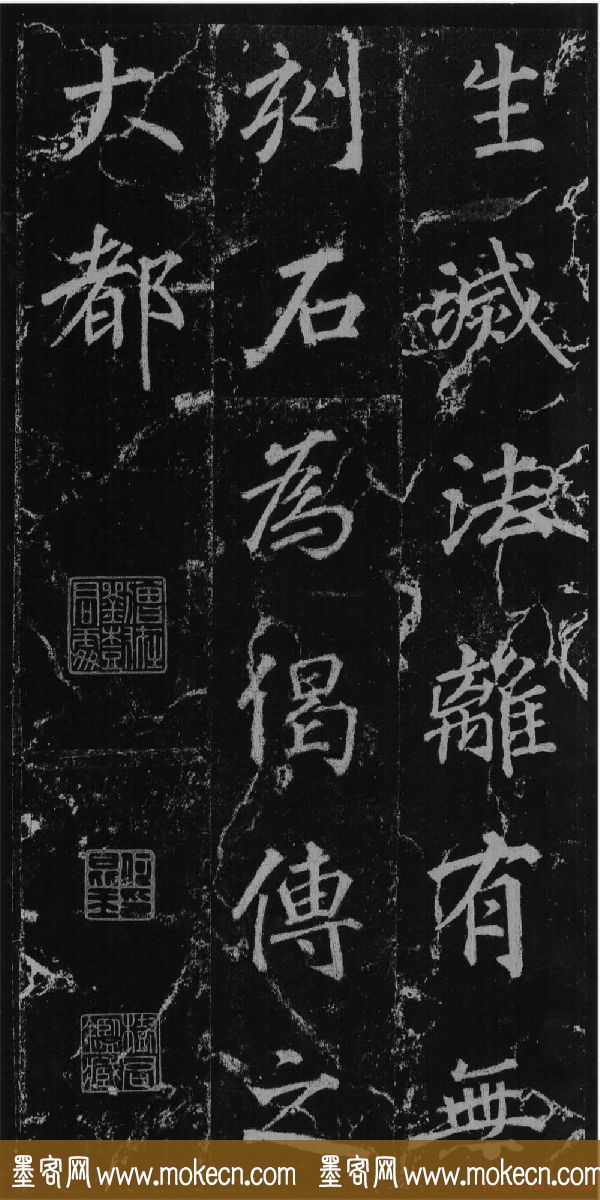 生滅法離有無
刻石為偈傳之
大都
墨客网 www.mokecn.com 墨客网 www.mokecn.com